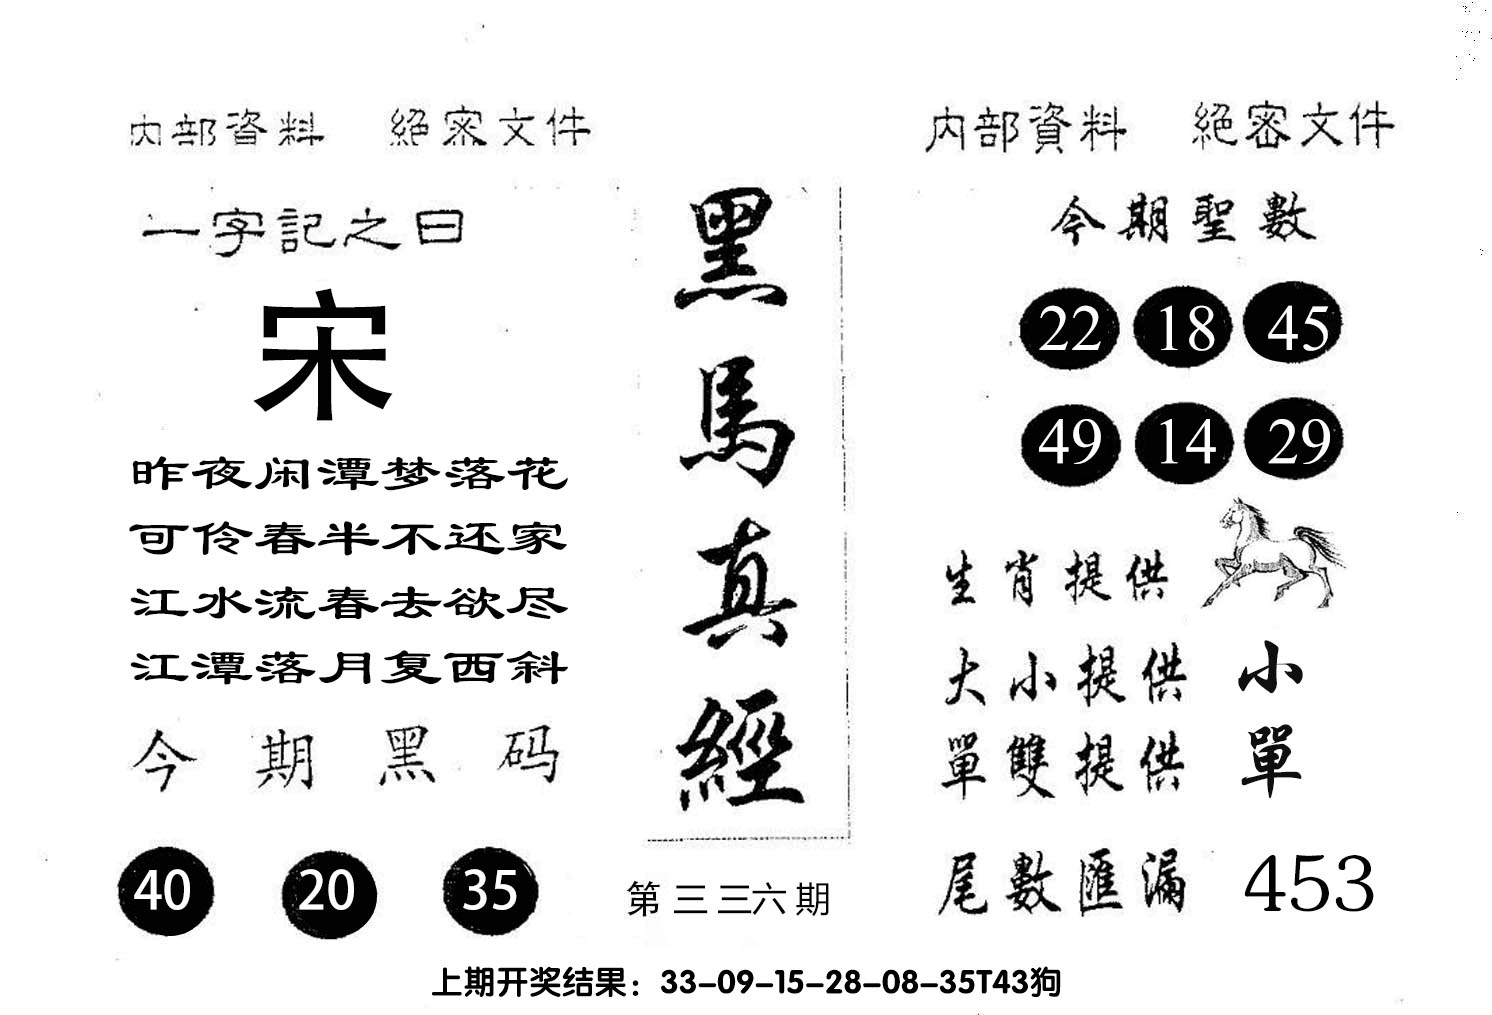 内部資料 絕密文件
一字記之曰
宋
昨夜闲潭梦落花
可伶春半不还家
江水流春去欲尽
江潭落月复西斜
今期黑码
40 20 35
黑馬真經
第三三六期
内部資料 絕密文件
今期聖數
22 18 45
49 14 29
生肖提供
大小提供 小
單雙提供 單
尾數匯漏 453
上期开奖结果：33-09-15-28-08-35T43狗